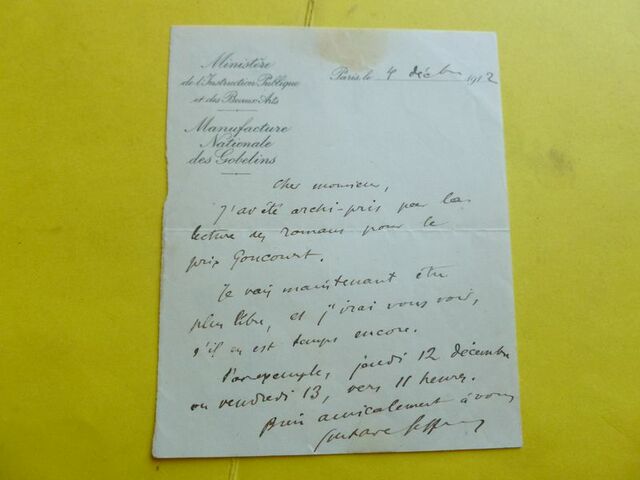 Ministère
de l'Instruction Publique
et des Beaux-Arts
Manufacture
Nationale
des Gobelins
Paris, le 4 décbre 1912
Cher monsieur,
J'ai été archi-pris par la
lecture des romans pour le
prix Goncourt.
Je vais maintenant être
plus libre, et j'irai vous voir,
s'il en est temps encore.
Par exemple, jeudi 12 décembre
ou vendredi 13, vers 11 heures.
Bien amicalement à vous
Gustave Geffroy